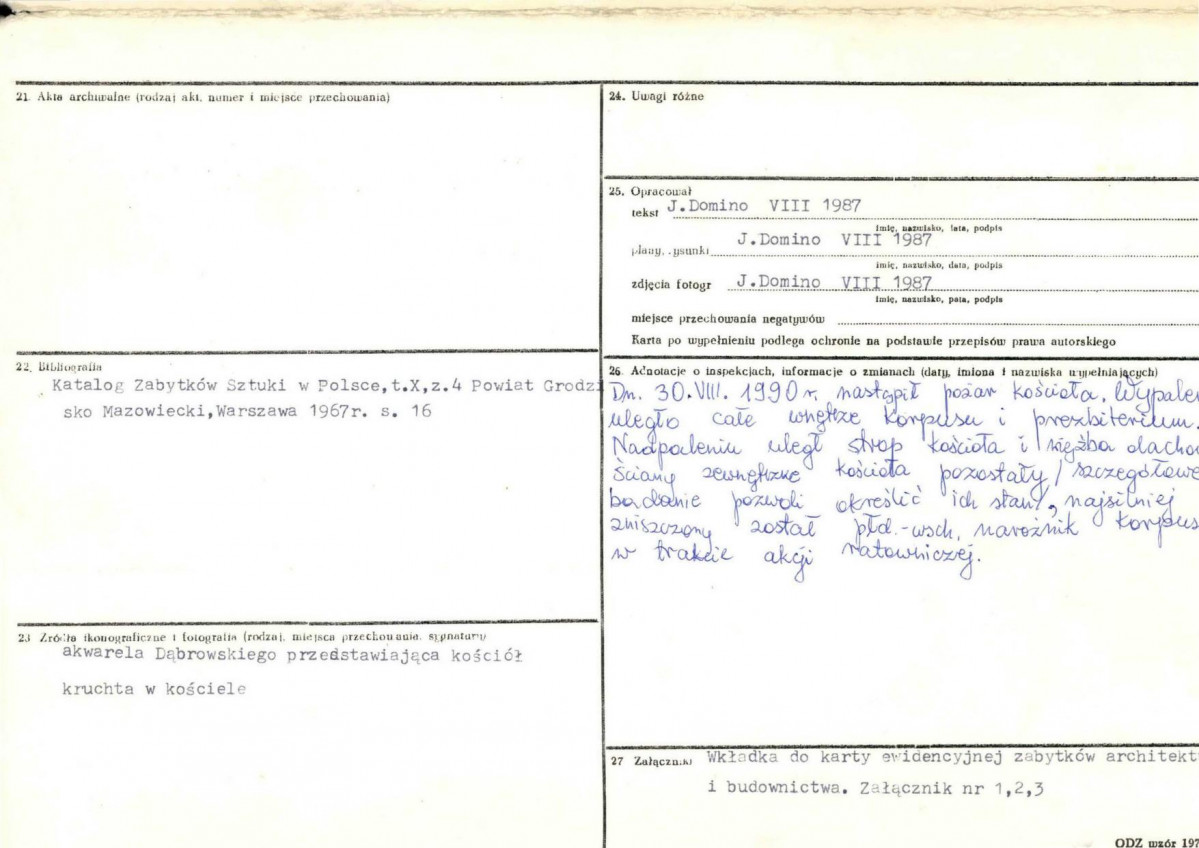 21. Akta archiwalne (rodzaj akt, numer i miejsce przechowania)
22. Bibliografia
Katalog Zabytków Sztuki w Polsce,t.X,z.4 Powiat Grodzi
sko Mazowiecki,Warszawa 1967r. s. 16
23 Źródła ikonograficzne i fotografia (rodzaj, miejsca przechowania, sygnatury)
akwarela Dąbrowskiego przedstawiająca kościół
kruchta w kościele
24. Uwagi różne
25. Opracował
tekst J.Domino VIII 1987
imię, nazwisko, lata, podpis
plany, rysunki J.Domino VIII 1987
imię, nazwisko, data, podpis
zdjęcia fotogr J.Domino VIII 1987
imię, nazwisko, pata, podpis
miejsce przechowania negatywów
Karta po wypełnieniu podlega ochronie na podstawie przepisów prawa autorskiego
26. Adnotacje o inspekcjach, informacje o zmianach (daty, imiona i nazwiska wypełniających)
Dn. 30.VIII. 1990 r. nastąpił pożar kościoła. Wypale
uległo całe wnętrze korpusu i prezbiterium.
Nadpaleniu uległ strop kościoła i więźba dacho
Ściany zewnętrzne kościoła pozostały / szczegółowe
badanie pozwoli określić ich stan/, najsilniej
zniszczony został płd.-wsch. narożnik korpus
w trakcie akcji ratowniczej.
27 Załączniki Wkładka do karty ewidencyjnej zabytków architekt
i budownictwa. Załącznik nr 1,2,3
ODZ wzór 197